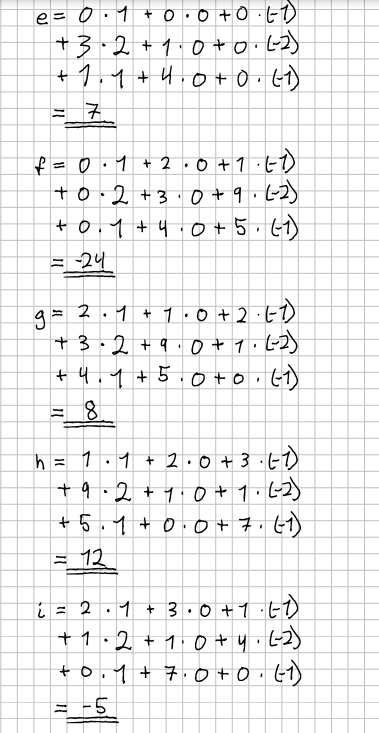 e = 0 · 1 + 0 · 0 + 0 · (-1)
+ 3 · 2 + 1 · 0 + 0 · (-2)
+ 1 · 1 + 4 · 0 + 0 · (-1)
= 7
f = 0 · 1 + 2 · 0 + 1 · (-1)
+ 0 · 2 + 3 · 0 + 9 · (-2)
+ 0 · 1 + 4 · 0 + 5 · (-1)
= -24
g = 2 · 1 + 1 · 0 + 2 · (-1)
+ 3 · 2 + 9 · 0 + 1 · (-2)
+ 4 · 1 + 5 · 0 + 0 · (-1)
= 8
h = 1 · 1 + 2 · 0 + 3 · (-1)
+ 9 · 2 + 1 · 0 + 1 · (-2)
+ 5 · 1 + 0 · 0 + 7 · (-1)
= 12
i = 2 · 1 + 3 · 0 + 1 · (-1)
+ 1 · 2 + 1 · 0 + 4 · (-2)
+ 0 · 1 + 7 · 0 + 0 · (-1)
= -5